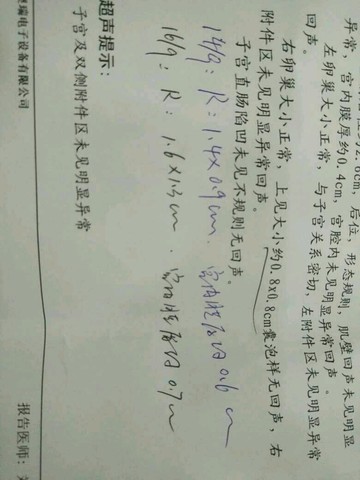 2.6cm，后位，形态规则，肌壁回声未见明显
异常，宫内膜厚约0.4cm，宫腔内未见明显异常回声。
左卵巢大小正常，与子宫关系密切，左附件区未见明显异常
回声。
右卵巢大小正常，上见大小约0.8x0.8cm囊泡样无回声，右
附件区未见明显异常回声。
子宫直肠陷凹未见不规则无回声。
14/9：R：1.4x0.9cm．宫内膜厚约0.6cm
16/9：R：1.6x1.3cm．宫内膜厚约0.7cm
超声提示：
子宫及双侧附件区未见明显异常
瑞电子设备有限公司
报告医师：